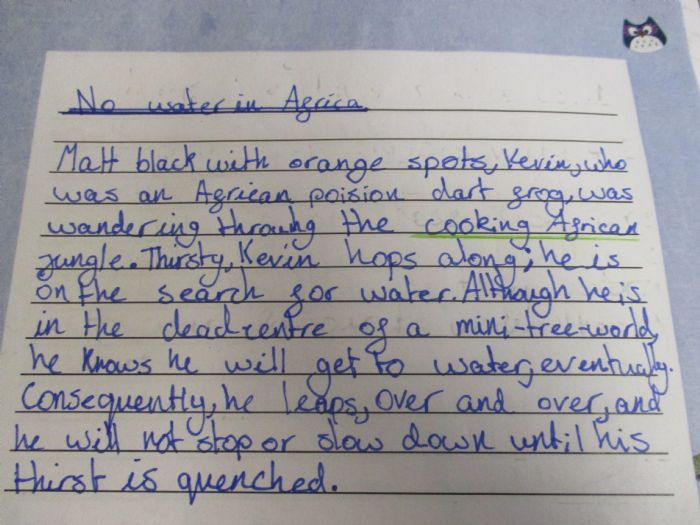 No water in Africa
Matt black with orange spots, Kevin, who
was an African poision dart frog, was
wandering throuhg the cooking African
jungle. Thirsty, Kevin hops along; he is
on the search for water. Although he is
in the dead centre of a mini-tree-world,
he knows he will get to water, eventually.
Consequently, he leaps, over and over, and
he will not stop or slow down until his
thirst is quenched.